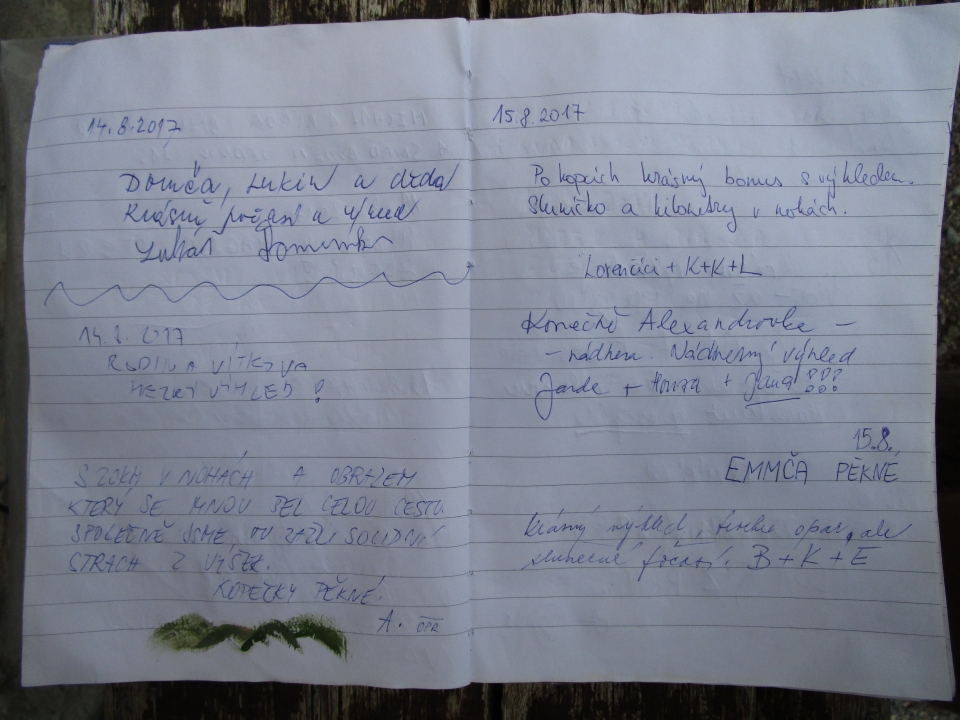 14.8.2017
Domča, Lukin a děda
Krásné počasí a
Lukáš Dominik
14.8.2017
RODINA VÍTKOVA
HEZKÝ VÝHLED!
S 20KM V NOHÁCH A OBRAZEM
KTERÝ SE MNOU ŠEL CELOU CESTU
SPOLEČNĚ JSME TU ZAŽILI SOLIDNÍ
STRACH Z VÝŠEK.
KOPEČKY PĚKNÉ.
A.
15.8.2017
Po kopcích krásný bonus s výhledem.
Sluníčko a kilometry v nohách.
Lorenčíci + K+K+L
Konečně Alexandrovka –
– nádhera. Nádherný výhled
+ Honza + Jana!???
15.8.
EMMČA PĚKNÉ
Krásný výhled, opar, ale
slunečné B + K + E